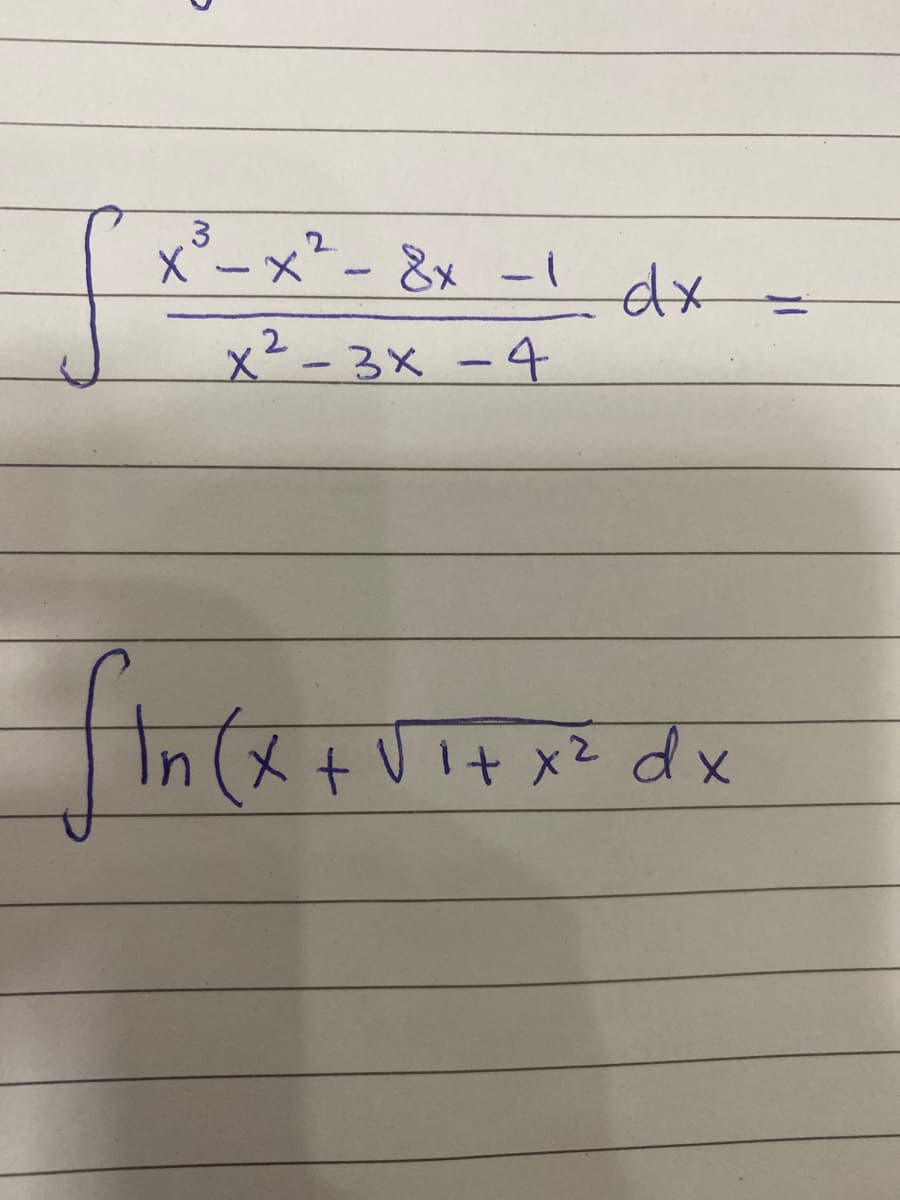 ∫ (x³ - x² - 8x - 1) / (x² - 3x - 4) dx =
∫ ln (x + √1 + x² dx